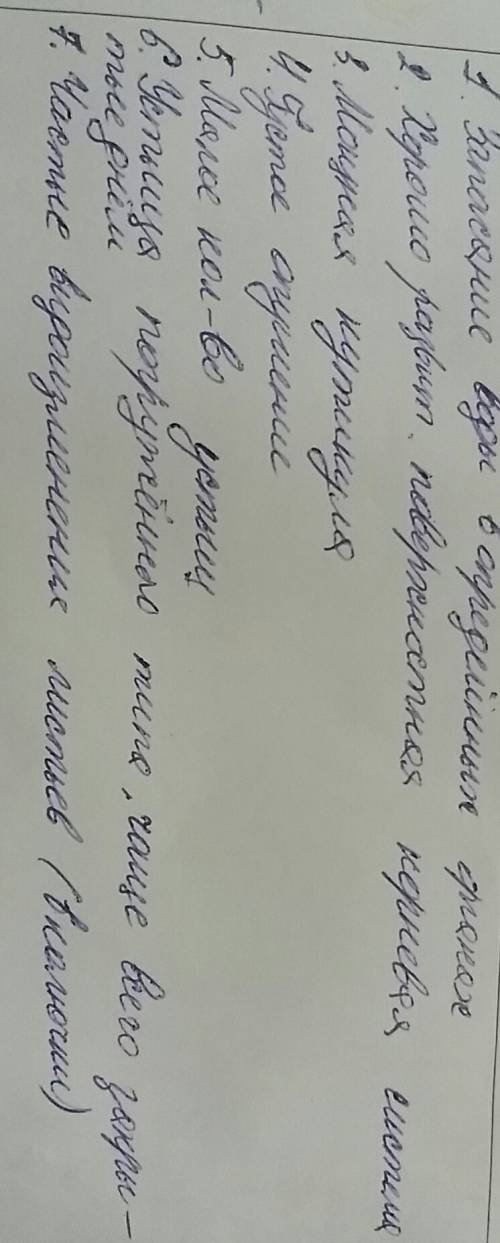 1. Запасание воды в определённых органах
2. Хорошо развит. поверхностная корневая система
3. Мощная кутикула
4. Густое опушение
5. Малое кол-во устьиц
6. Устьица погружённого типа, чаще всего закры-
тые днём
7. Частые видоизменения листьев (в колючки)